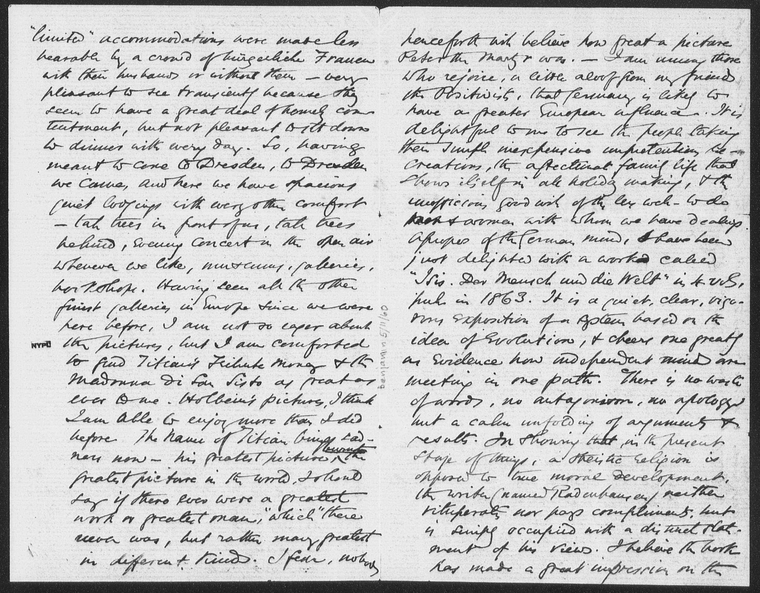 "limited" accommodations were made less
bearable by a crowd of bürgerliche Frauen
with their husbands or without them — very
pleasant to see transiently because they
seem to have a great deal of homely con
tentment, but not pleasant to sit down
to dinner with every day. So, having
meant to come to Dresden, to Dresden
we came, and here we have spacious
quiet lodgings with every other comfort
— tall trees in front of us, tall trees
behind, evening concert in the open air
whenever we like, museums, galleries,
workshops. Having seen all the other
finest galleries in Europe since we were
here before, I am not so eager about
NYPL
the pictures, but I am comforted
to find Titian's Tribute Money & the
Madonna di San Sisto as great as
ever to me. Holbein's pictures, I think
I am able to enjoy more than I did
before. The name of Titian brings sad-
ness now — his greatest picture the
greatest picture in the world, I should
say if there ever were a greatest
work or greatest man, "which" there
never was, but rather many greatest
in different kinds. I fear, nobody
henceforth will believe how great a picture
Peter the Martyr was. — I am among those
who rejoice, a little aloof from my friends
the Positivists, that Germany is likely to
have a greater European influence. It is
delightful to me to see the people taking
their simple inexpensive unpretending re-
creations, the affectionate family life that
shows itself in all holiday making, & the
unofficious good will of the less well-to-do
men & women with whom we have dealings.
Apropos of the German mind, I have been
just delighted with a work called
"Isis. Der Mensch und die Welt" in 4 vols,
pub. in 1863. It is a quiet, clear, vigo-
rous exposition of a system based on the
idea of Evolution, & cheers one greatly
as evidence how independent minds are
meeting in one path. There is no waste
of words, no antagonism, no apology
but a calm unfolding of argument &
results. In showing that in the present
stage of things, a theistic religion is
opposed to true moral development,
the writer (named Radenhausen) neither
vituperates nor pays compliments, but
is simply occupied with a distinct state-
ment of his views. I believe the book
has made a great impression on the